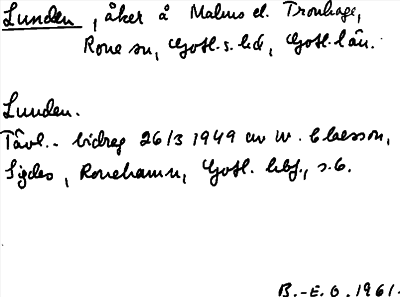 Lunden, åker å Malms el. Tronhage,
Rone sn, Gotl. s. hd, Gotl. län.
Lunden.
Tävl.-bidrag 26/3 1949 av W. Claesson,
Sigdes, Ronehamn, Gotl. hbf., s. 6.
B.-E. O. 1961.